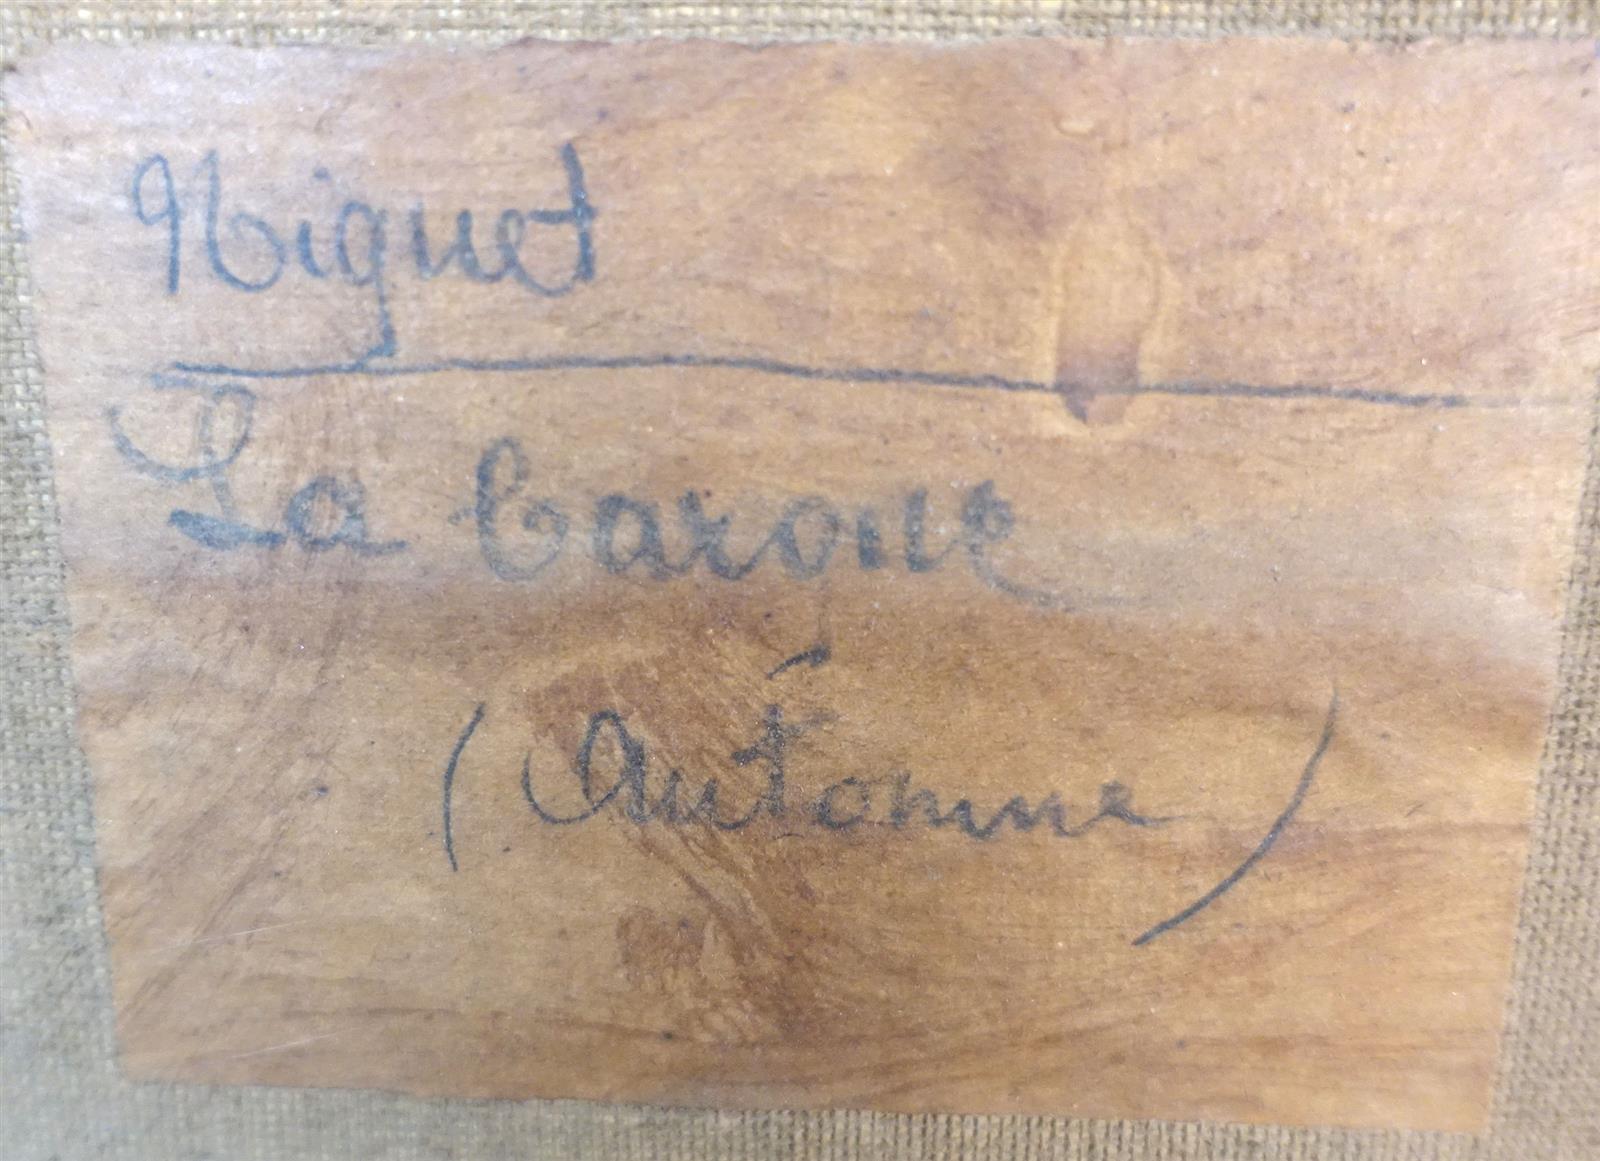 Niquet
La Garonne
(Automne)